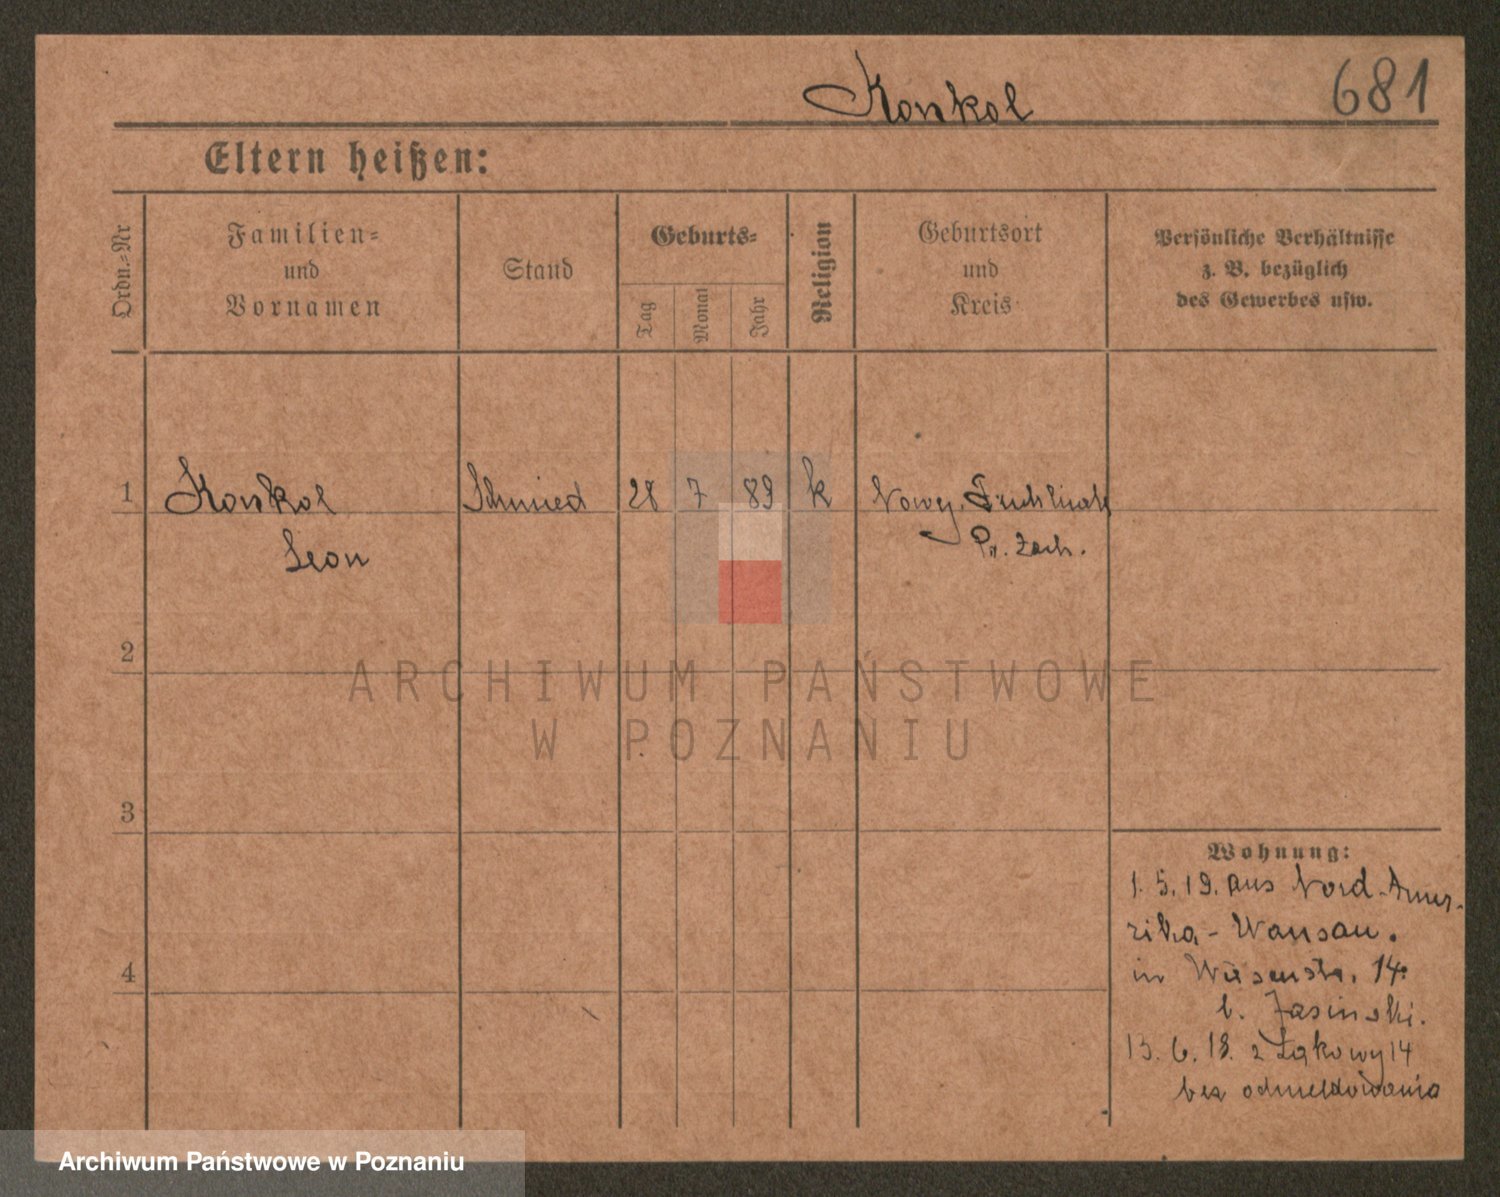 Konkol
681
Eltern heißen:
Ordn.-Nr
Familien-
und
Vornamen
Stand
Geburts-
Tag
Monat
Jahr
Religion
Geburtsort
und
Kreis
Persönliche Verhältnisse
z. B. bezüglich
des Gewerbes usw.
1 Konkol Schmied 28 7 89 k Nowy.
Leon Pr. Zach.
2
3
4
Wohnung:
1. 5. 19. aus Nord-Amer-
rika - Wausau.
in Wiesenstr. 14.
b. Jasinski.
6. 18. z Łąkowy 14
bez odmeldowania
ARCHIWUM PAŃSTWOWE
W POZNANIU
Archiwum Państwowe w Poznaniu